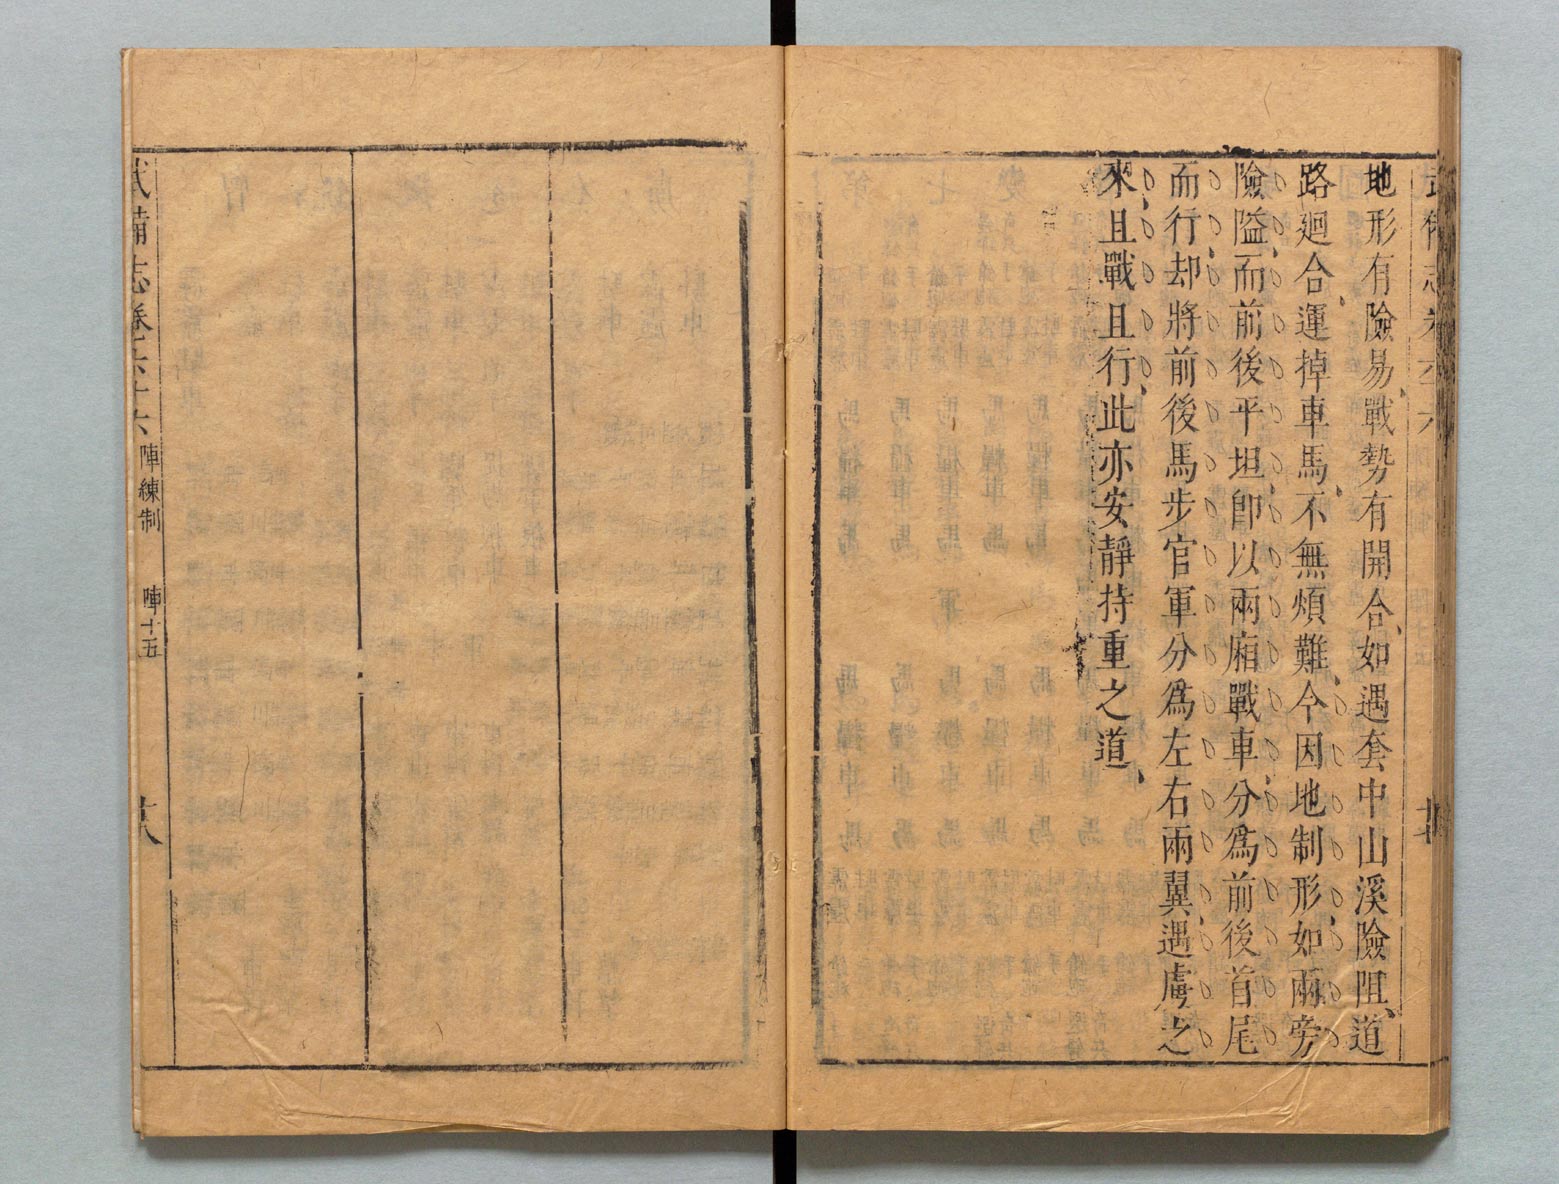 地形有險易、戰勢有開合、如遇套中山溪險阻、道
路廻合、運掉車馬、不無煩難、今因地制形、如兩旁
險隘、而前後平坦、卽以兩廂戰車、分爲前後首尾
而行、却將前後馬步官軍分爲左右兩翼、遇虜之
來、且戰且行、此亦安靜持重之道、
武備志卷六十六 陣練制 陣十五 廿八